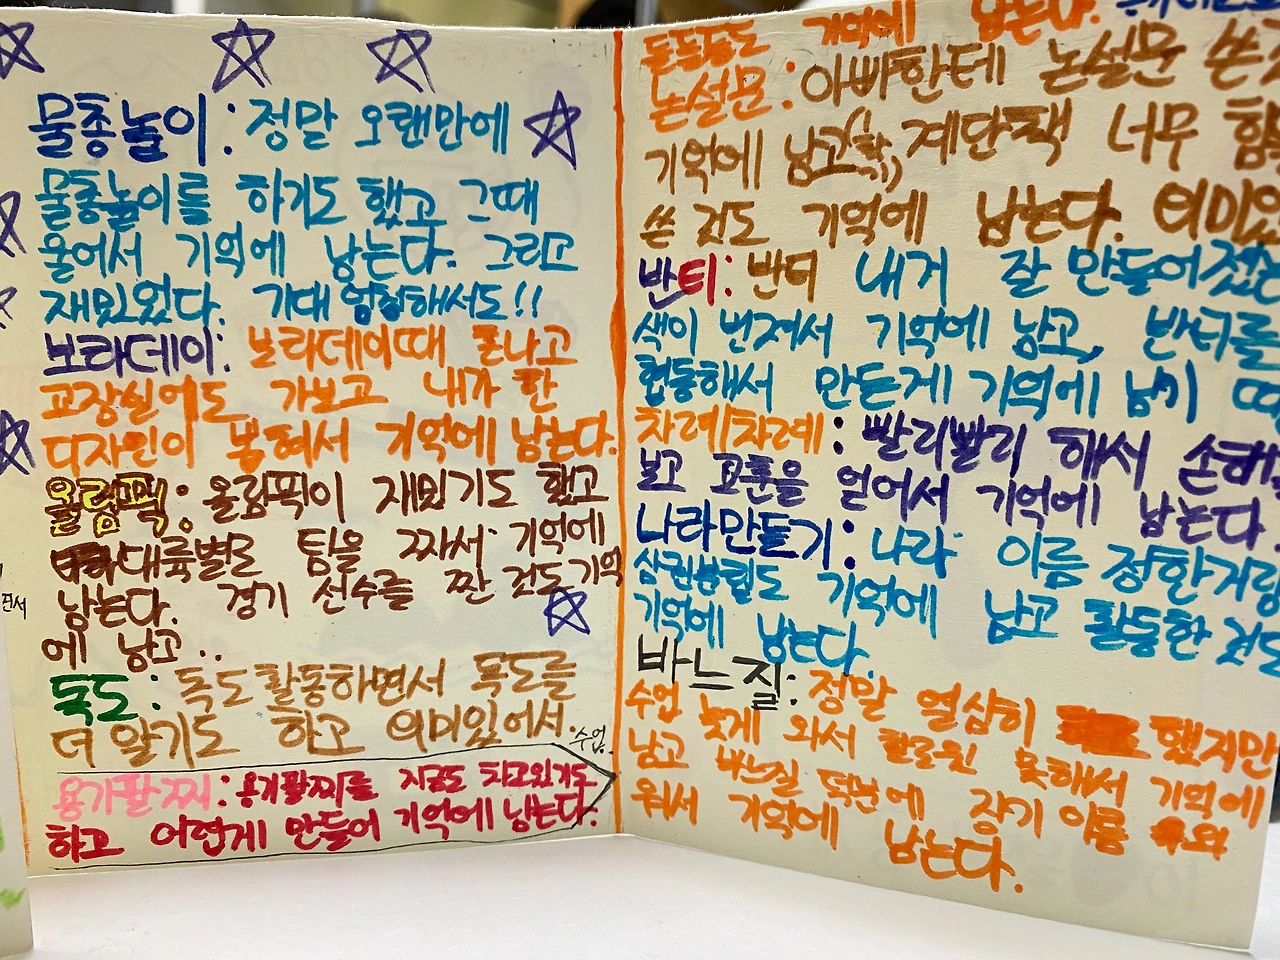 물총놀이: 정말 오랜만에
물총놀이를 하기도 했고 그때
울어서 기억에 남는다. 그리고
재밌었다. 기대 엄청해서도!!
보라데이: 보라데이때 혼나고
교장실에도 가보고 내가 한
디자인이 뽑혀서 기억에 남는다.
올림픽: 올림픽이 재밌기도 했고
대륙별로 팀을 짜서 기억에
남는다. 경기 선수를 짠 것도 기억
에 남고..
독도: 독도활동하면서 독도를
더 알기도 하고 의미있어서.
수업.
용기팔찌: 용기팔찌를 지금도 차고있기도
하고 어렵게 만들어 기억에 남는다.
기억에 남는다.
논설문: 아빠한테 논설문 쓴
기억에 남고 계단책 너무
쓴 것도 기억에 남는다.
반티: 반티 내거 잘 만들어졌는
색이 번져서 기억에 남고, 반티를
협동해서 만든게 기억에 남기 때
차례/차례: 빨리빨리 해서 손해
보고 교훈을 얻어서 기억에 남는다.
나라만들기: 나라 이름 정한거랑
삼권분립도 기억에 남고 활동한 것도
기억에 남는다.
바느질: 정말 열심히 했지만
수업 늦게 와서 완료 못해서 기억에
남고 바느질 덕분에 장기 이름
워서 기억에 남는다.